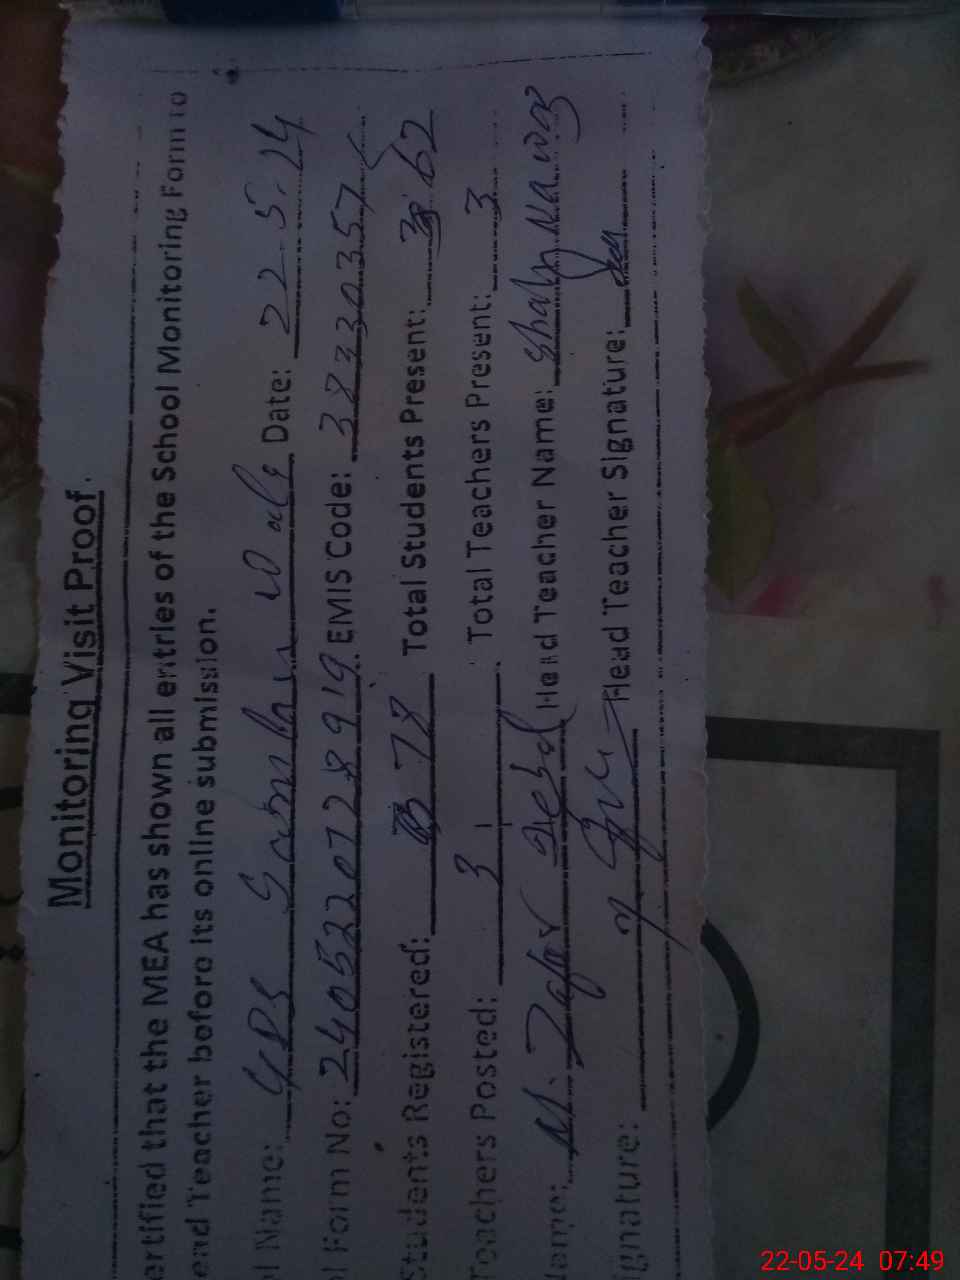 Monitoring Visit Proof.
ertified that the MEA has shown all entries of the School Monitoring Form to
ead Teacher before its online submission.
l Name: GPS Wala Date: 22-5-24
l Form No: 2405220728919 EMIS Code: 38330357
Students Registered: 78 Total Students Present: 62
Teachers Posted: 3 Total Teachers Present: 3
Name: M. Zafar Head Teacher Name: Shah Nawaz
ignature: Head Teacher Signature:
22-05-24 07:49